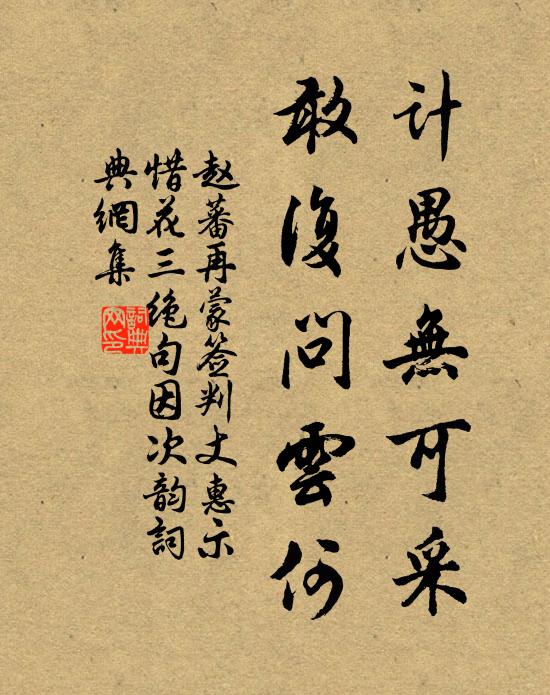 计愚無可采
敢復问雲何
赵蕃再蒙签判丈惠示
惜花三绝句因次韵詞
典網集
詞典网印